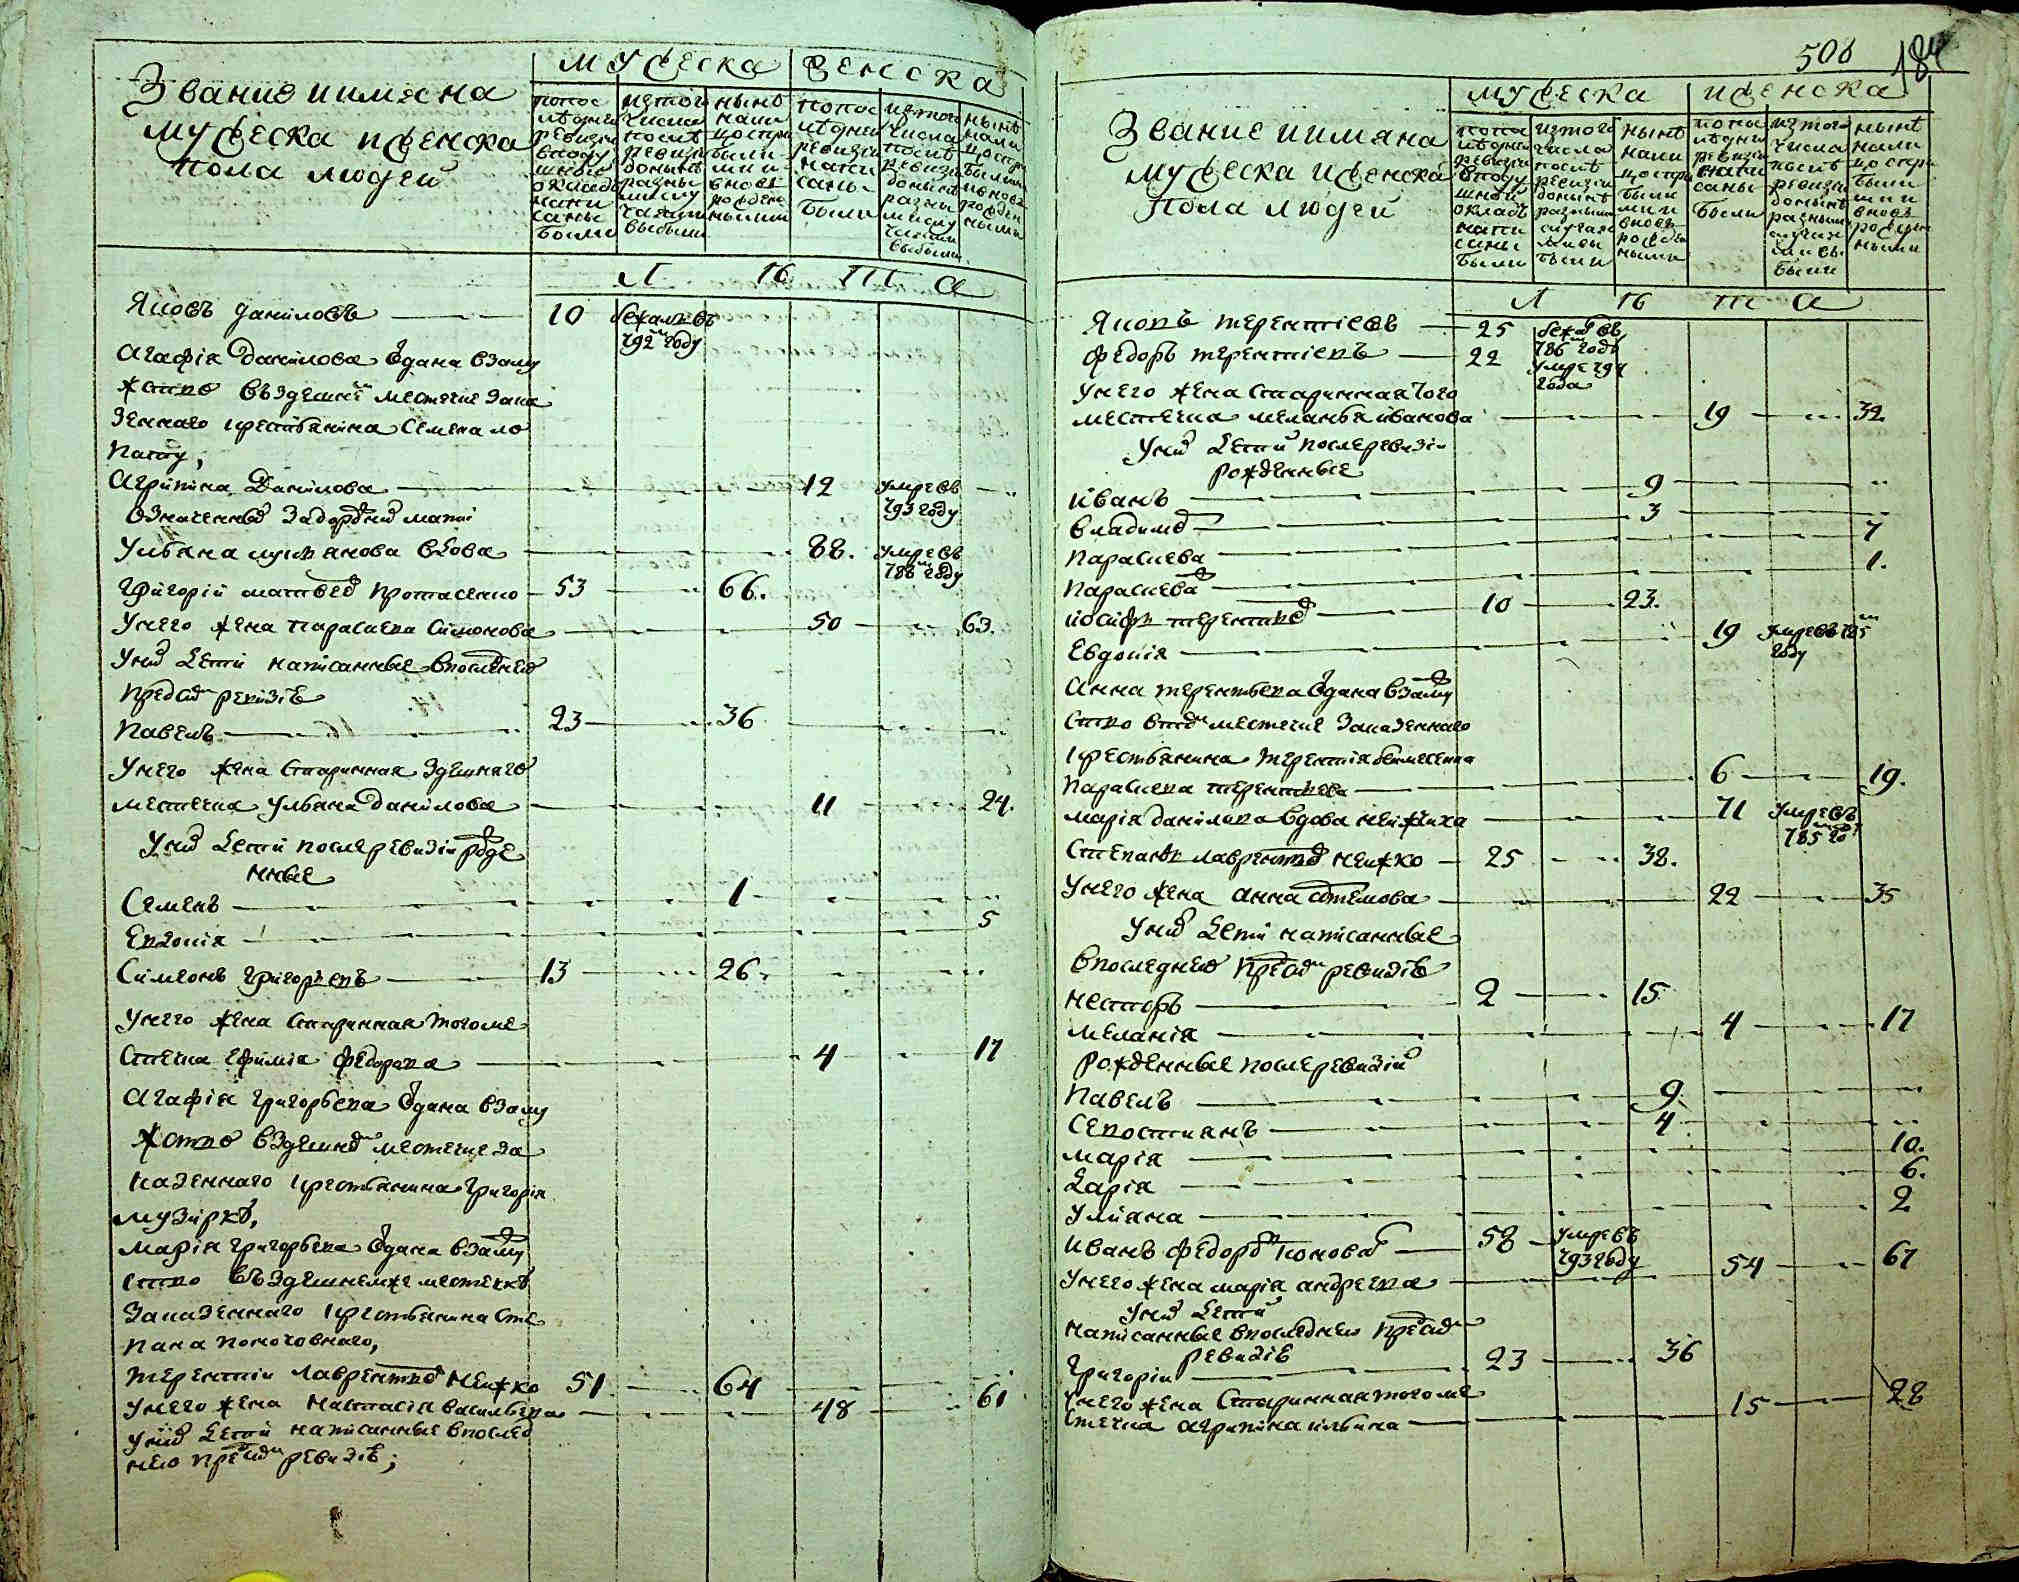 Звание иимяна
мужеска иженска
пола людей
мужеска
женска
попос
леднеи
ревизии
вподу
шной
окладъ
напи
саны
были
изтого
числа
после
ревизии
доныне
разны
ми слу
чаями
выбыли
ныне
нали
цо спри
были
ми и
вновь
рожден
ными
попос
ледней
ревизии
напи
саны
были
изтого
числа
после
ревизи
доныне
разны
ми слу
чаями
выбыли
ныне
нали
цо спри
былми
ивновь
рожден
ными
Л ѣ т а
Яковъ даниловъ 10 бежалъ въ
792м году
Агафія Данилова Ѿдана взаму
жство въздешнем местечке зака
зеннаго крестьянина Семена ло
пату;
Агрипина Данилова 12 умре въ
793 году
Означенных Задорожных мати
Ульяна лукянова вдова 88. умре въ
788м году
Григорій матвеев протасенко 53 66.
Унего жена параскева Симонова 50 63.
Уних дети написанные впоследней
предъ сим ревизіѣ
Павелъ 23 36
Унего жена Старинная здешняго
местечка Ульяна данілова 11 24.
Уних дети послеревизіи рожде
нные
Семенъ 1
Евдокія 5
Симеонъ григорьевъ 13 26.
Унего жена старинная тогоме
стечка Ефимія федорова 4 17
Агафія григорьева Ѿдана взаму
жство вздешнем местечке за
казеннаго крестьянина григорія
музирку,
Марія григорьева Ѿдана взамуж
ство въздешнемже местечкѣ
Заказеннаго крестьянина Сте
пана поночовнаго,
терентій лаврентьев нежко 51 64
унего жена настасія васильева 48 61
уних дети написанные впослед
ней предъ сим ревизіѣ;
506
184
Звание иимяна
мужеска иженска
пола людей
мужеска
иженска
попо
ледней
ревизии
вподу
шной
окладъ
напи
саны
были
изтого
числа
после
ревизіи
доныне
разными
случая
ныне
нали
цо спри
были
ми и
вновь
рожден
ными
попо
ледней
ревизіи
напи
саны
были
изтого
числа
после
ревизіи
доныне
разными
случая
были
ныне
нали
цо спри
были
ми и
вновь
рожден
ными
Л ѣ т а
Яковъ терентіевъ 25 бежал въ
786м годѣ
федоръ терентіевъ 22 умре 794
года
Унего жена Старинная того
местечка меланья иванова 19 32.
Уних детей послеревизіи
рожденные
Иванъ 9
Владимер 3
Параскева 7
Параскева 1.
Иосифъ терентьев 10 23.
Евдокія 19 умре въ 785м
году
Анна терентьева Ѿдана взамуж
ство втом местечке Заказеннаго
крестьянина терентія
Параскева терентьева 6 19.
Марія данілова вдова нежчиха 71 умре въ
785м го
Степанъ лаврентьев нежко 25 38.
Унего жена анна артемова 22 35
Уних дети написанные
впоследней предъ сим ревизіѣ
Несторъ 2 15
Меланія 4 17
Рожденные послеревизіи
Павелъ 9
Севостиянъ 4
Марія 10.
Дарія 6.
Улияна 2
Иванъ федоров Коновал 58 умре въ
793 году
Унего жена марія андреева 54 67
Уних детей
написанные впоследней предъ сим
ревизіѣ
Григорій 23 36
Унего жена Старинная тогоме
стечка агрипина ильина 15 28